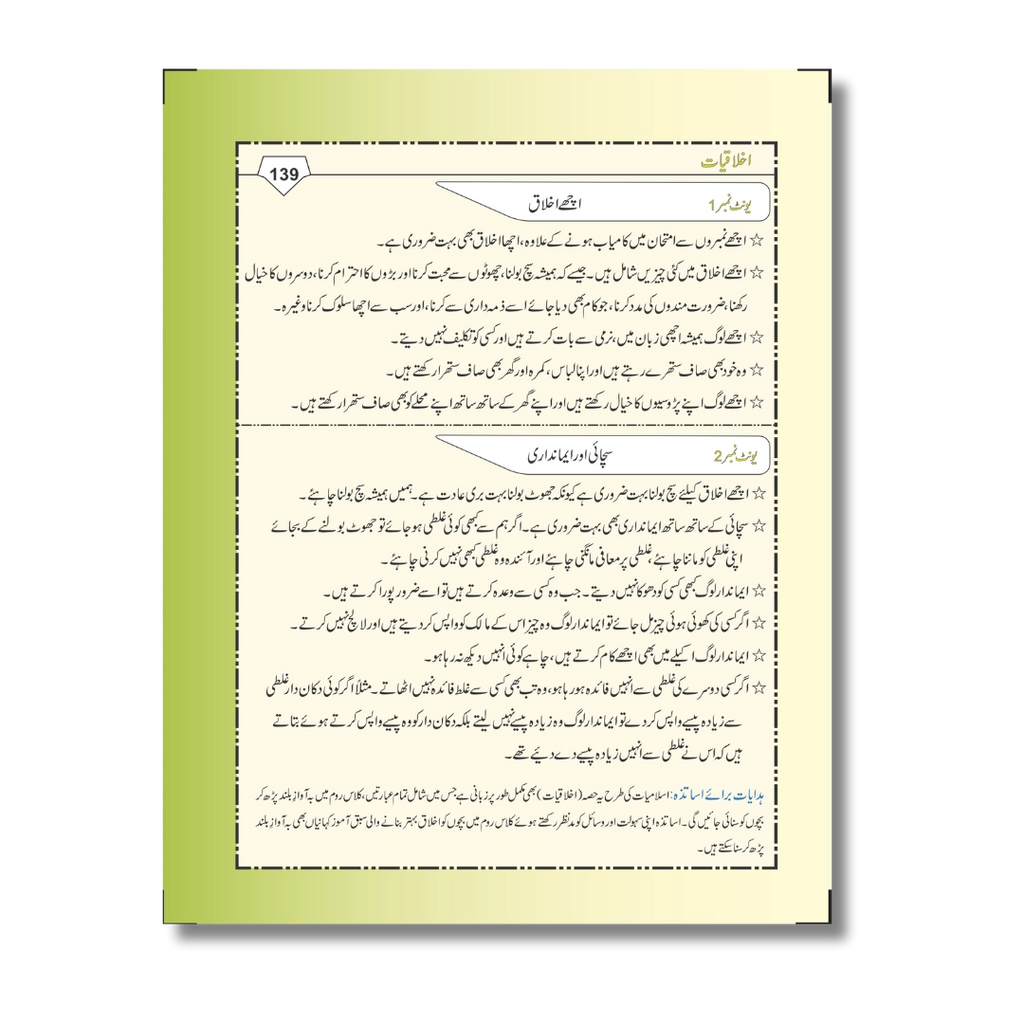 اخلاقیات
139
یونٹ نمبر 1 اچھے اخلاق
☆ اچھے نمبروں سے امتحان میں کامیاب ہونے کے علاوہ، اچھا اخلاق بھی بہت ضروری ہے۔
☆ اچھے اخلاق میں کئی چیزیں شامل ہیں۔ جیسے کہ ہمیشہ سچ بولنا، چھوٹوں سے محبت کرنا اور بڑوں کا احترام کرنا، دوسروں کا خیال
رکھنا، ضرورت مندوں کی مدد کرنا، جو کام بھی دیا جائے اسے ذمہ داری سے کرنا، اور سب سے اچھا سلوک کرنا وغیرہ۔
☆ اچھے لوگ ہمیشہ اچھی زبان میں، نرمی سے بات کرتے ہیں اور کسی کو تکلیف نہیں دیتے۔
☆ وہ خود بھی صاف ستھرے رہتے ہیں اور اپنا لباس، کمرہ اور گھر بھی صاف ستھرا رکھتے ہیں۔
☆ اچھے لوگ اپنے پڑوسیوں کا خیال رکھتے ہیں اور اپنے گھر کے ساتھ ساتھ اپنے محلے کو بھی صاف ستھرا رکھتے ہیں۔
یونٹ نمبر 2 سچائی اور ایمانداری
☆ اچھے اخلاق کیلئے سچ بولنا بہت ضروری ہے کیونکہ جھوٹ بولنا بہت بری عادت ہے۔ ہمیں ہمیشہ سچ بولنا چاہئے۔
☆ سچائی کے ساتھ ساتھ ایمانداری بھی بہت ضروری ہے۔ اگر ہم سے کبھی کوئی غلطی ہو جائے تو جھوٹ بولنے کے بجائے
اپنی غلطی کو ماننا چاہئے، غلطی پر معافی مانگنی چاہئے اور آئندہ وہ غلطی کبھی نہیں کرنی چاہئے۔
☆ ایماندار لوگ کبھی کسی کو دھوکا نہیں دیتے۔ جب وہ کسی سے وعدہ کرتے ہیں تو اسے ضرور پورا کرتے ہیں۔
☆ اگر کسی کی کھوئی ہوئی چیز مل جائے تو ایماندار لوگ وہ چیز اس کے مالک کو واپس کر دیتے ہیں اور لالچ نہیں کرتے۔
☆ ایماندار لوگ اکیلے میں بھی اچھے کام کرتے ہیں، چاہے کوئی انہیں دیکھ نہ رہا ہو۔
☆ اگر کسی دوسرے کی غلطی سے انہیں فائدہ ہو رہا ہو، وہ تب بھی کسی سے غلط فائدہ نہیں اٹھاتے۔ مثلاً اگر کوئی دکان دار غلطی
سے زیادہ پیسے واپس کر دے تو ایماندار لوگ وہ زیادہ پیسے نہیں لیتے بلکہ دکان دار کو وہ پیسے واپس کرتے ہوئے بتاتے
ہیں کہ اس نے غلطی سے انہیں زیادہ پیسے دے دئیے تھے۔
ہدایات برائے اساتذہ: اسلامیات کی طرح یہ حصہ (اخلاقیات) بھی مکمل طور پر زبانی ہے جس میں شامل تمام عبارتیں، کلاس روم میں بہ آواز بلند پڑھ کر
بچوں کو سنائی جائیں گی۔ اساتذہ اپنی سہولت اور وسائل کو مدنظر رکھتے ہوئے کلاس روم میں بچوں کو اخلاق بہتر بنانے والی سبق آموز کہانیاں بھی بہ آواز بلند
پڑھ کر سنا سکتے ہیں۔